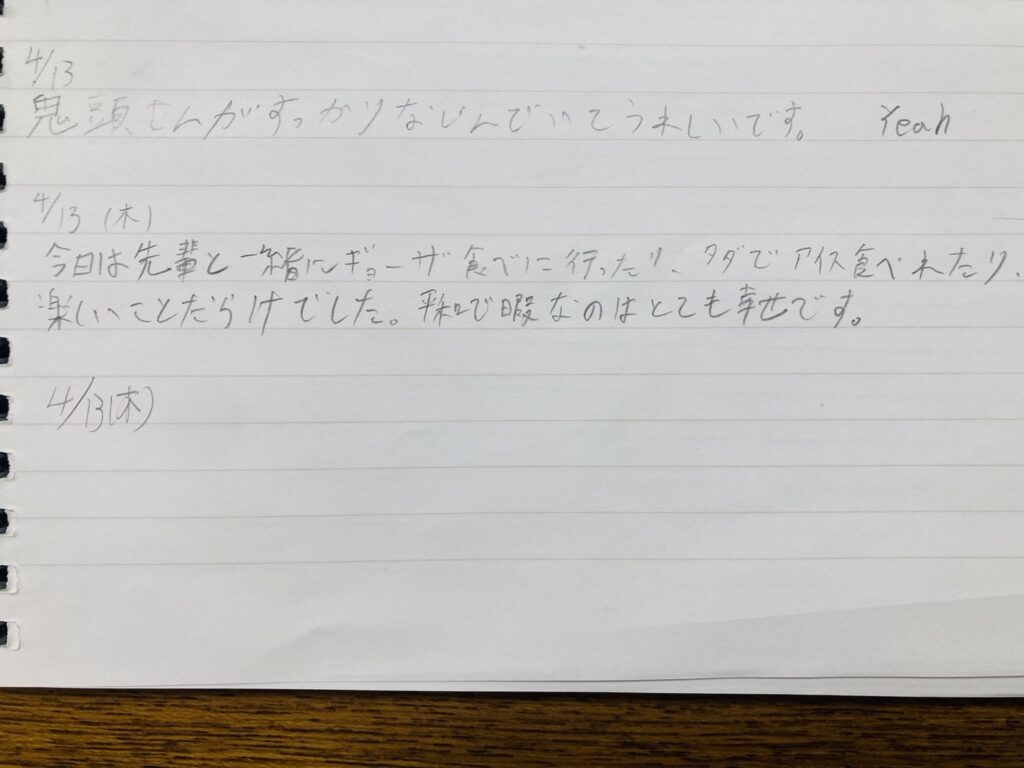 4/13
鬼頭さんがすっかりなじんでいてうれしいです。 Yeah
4/13 (木)
今日は先輩と一緒にギョーザ食べに行ったり、タダでアイス食べれたり、
楽しいことだらけでした。平和で暇なのはとても幸せです。
4/13(木)